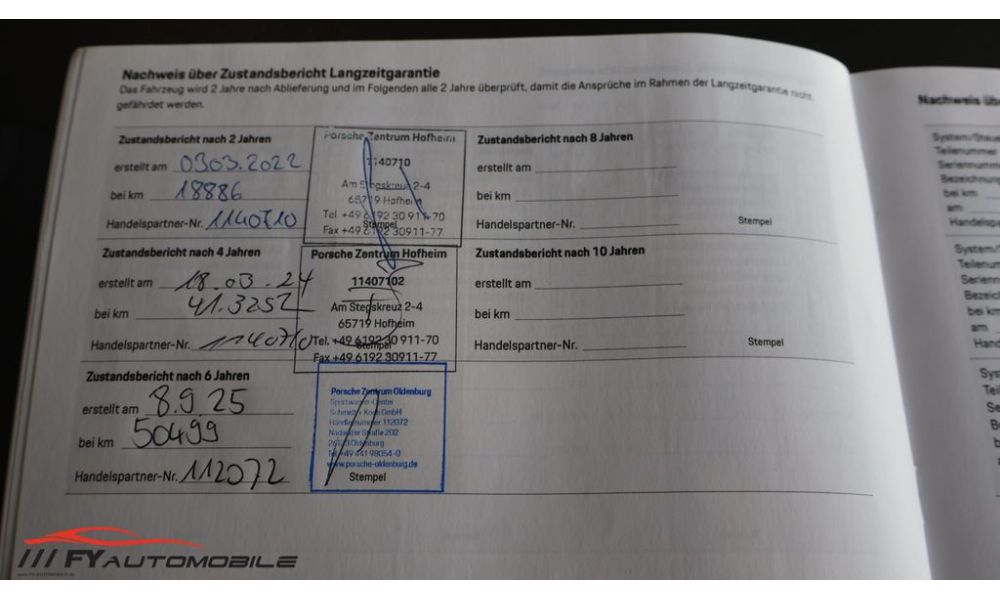 Nachweis über Zustandsbericht Langzeitgarantie
Das Fahrzeug wird 2 Jahre nach Ablieferung und im Folgenden alle 2 Jahre überprüft, damit die Ansprüche im Rahmen der Langzeitgarantie nicht
gefährdet werden.
Zustandsbericht nach 2 Jahren
erstellt am 03.03.2022
bei km 18886
Handelspartner-Nr. 1140710
Porsche Zentrum Hofheim
1140710
Am Stegskreuz 2-4
65719 Hofheim
Tel +49 6192 30 911-70
Stempel
Fax +49 6192 30911-77
Zustandsbericht nach 8 Jahren
erstellt am
bei km
Handelspartner-Nr.
Stempel
Zustandsbericht nach 4 Jahren
erstellt am 18.03.24
bei km
Handelspartner-Nr. 1140710
Porsche Zentrum Hofheim
11407102
Am Stegskreuz 2-4
65719 Hofheim
Tel. +49 6192 30 911-70
Stempel
Fax +49 6192 30911-77
Zustandsbericht nach 10 Jahren
erstellt am
bei km
Handelspartner-Nr.
Stempel
Zustandsbericht nach 6 Jahren
erstellt am 8.9.25
bei km 50499
Handelspartner-Nr. 112072
Porsche Zentrum Oldenburg
Sportwagen-Center
Schmidt + Koch GmbH
Händlernummer 112072
Straße 202
Oldenburg
Tel +49 441 98054-0
www.porsche-oldenburg.de
Stempel
Nachweis üb
Teilenummer
bei km
am
am
/// FY AUTOMOBILE
www.FY-AUTOMOBILE.de